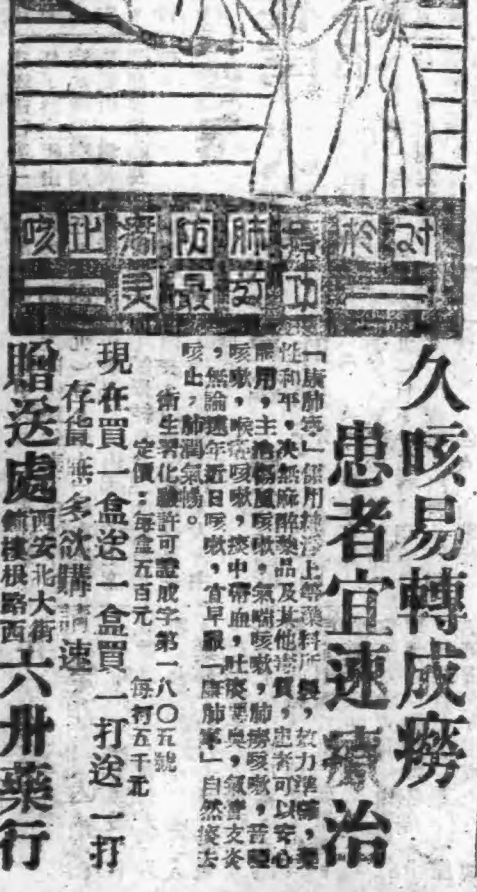 对於
肺防痨止咳
功效最灵
久咳易轉成痨
患者宜速 治
「康肺寧」係用純淨上等藥料所製，效力準確，藥
性和平，决無麻醉藥品及其他毒質，患者可以安心
服用，主治傷風咳嗽，氣喘咳嗽，肺痨咳嗽，
咳嗽，喉痛咳嗽，痰中帶血，吐痰，氣管支炎
，無論遠年近日咳嗽，宜早服「康肺寧」自然痰去
咳止，肺潤氣暢。
衛生署化驗許可證成字第一八〇五號
定價：每盒五百元 每打五千元
現在買一盒送一盒買一打送一打
存貨無多欲購請速
贈送處西安北大街
樓根路西六卅藥行